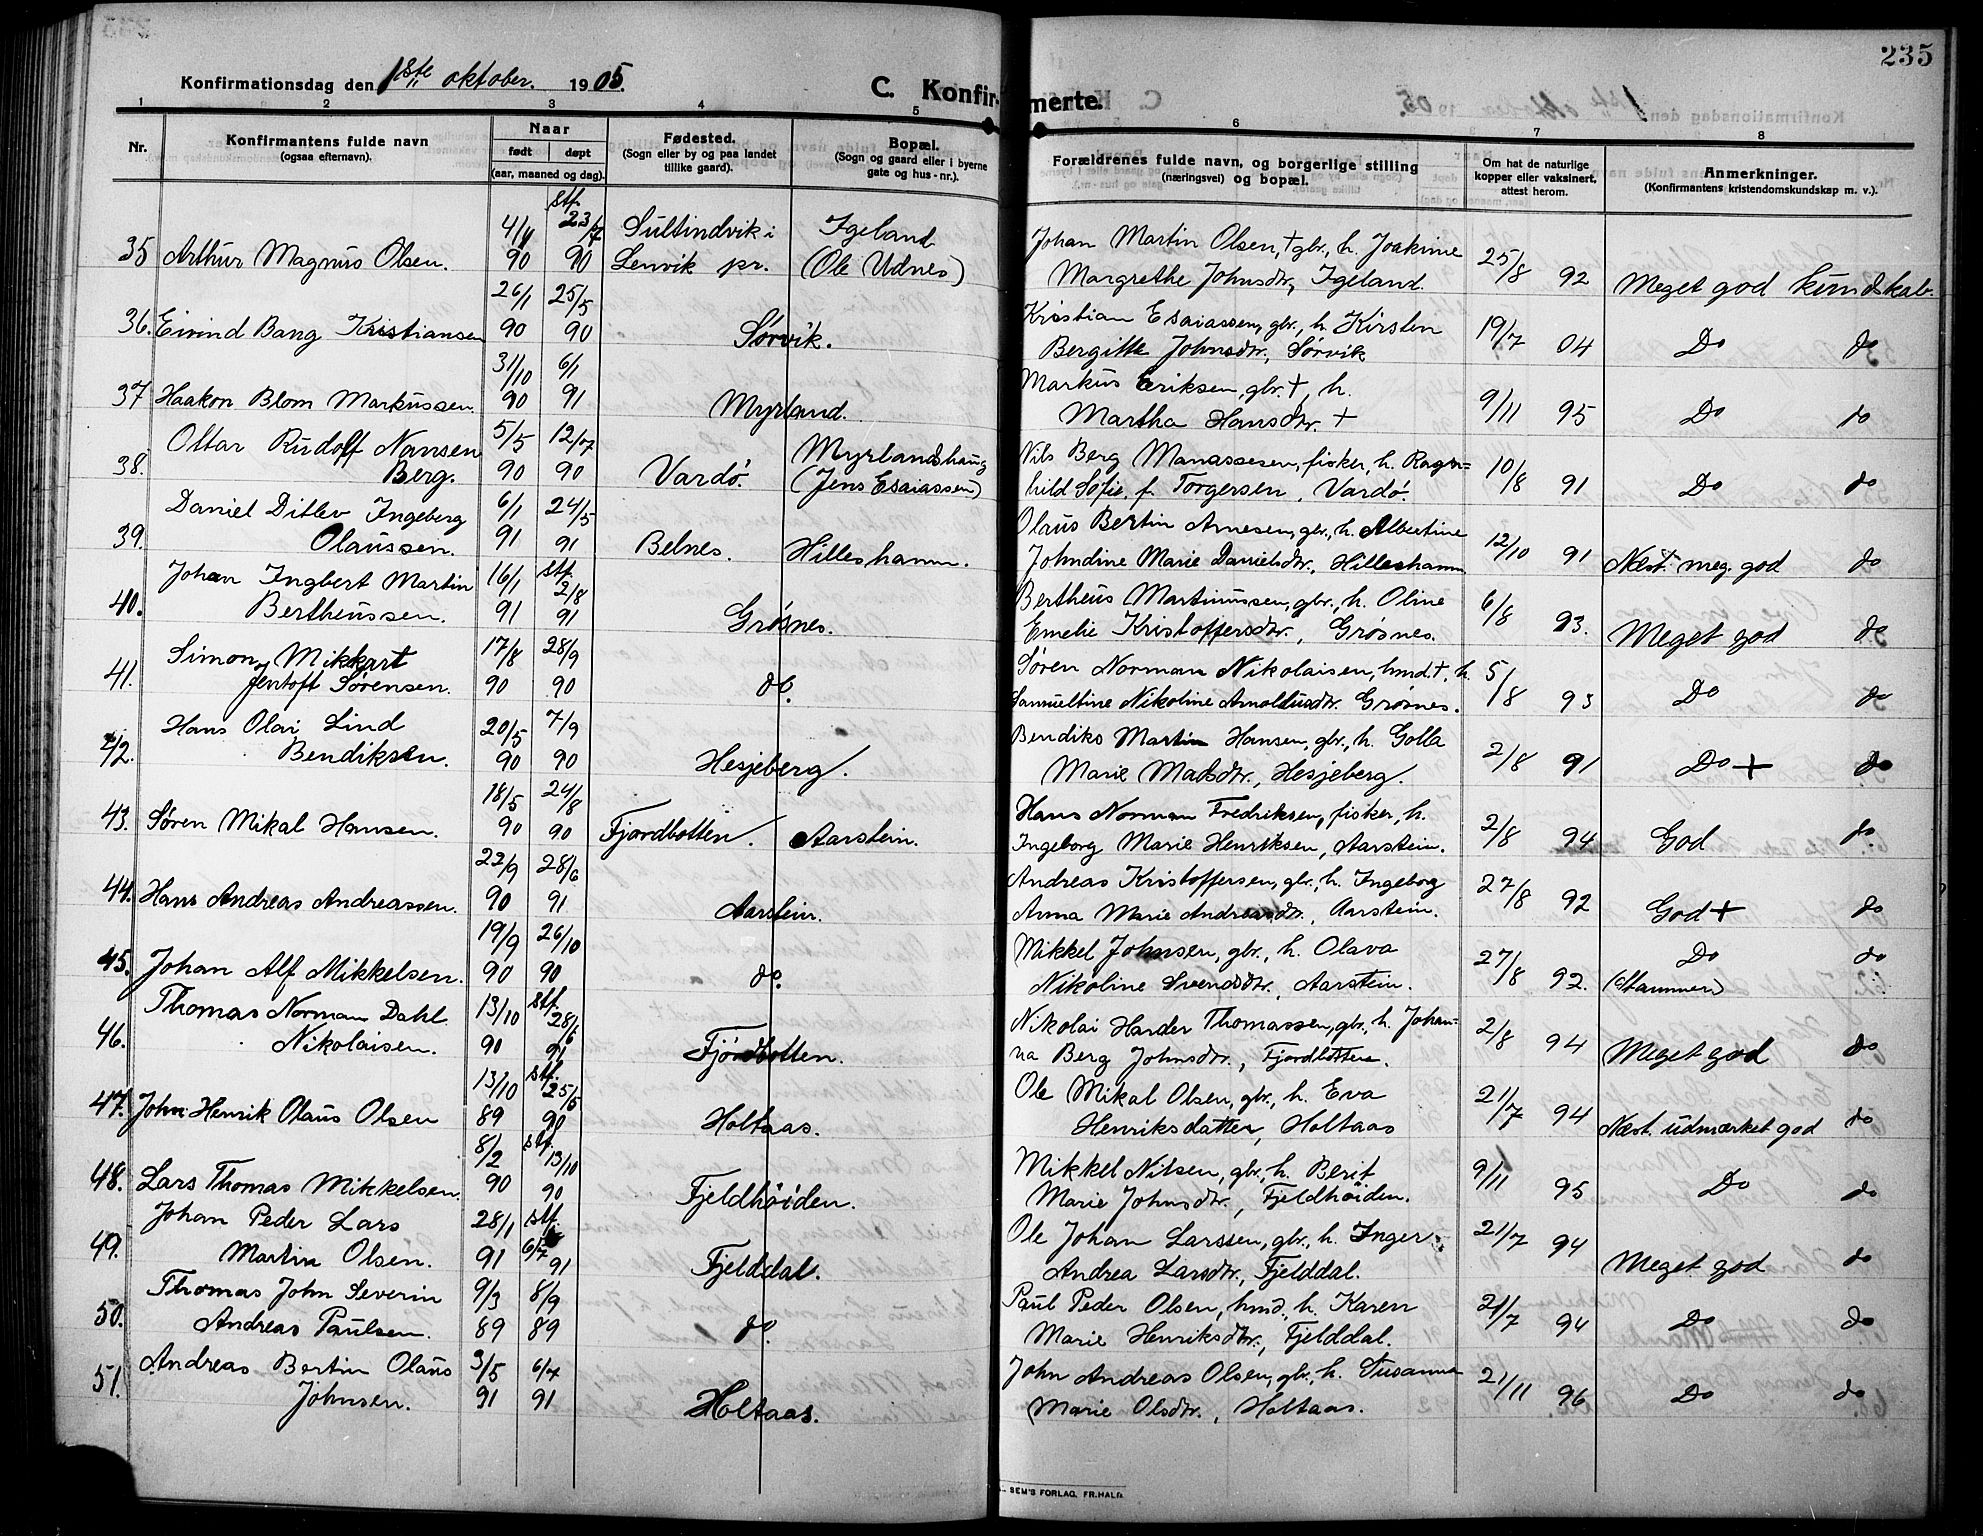 235
Konfirmationsdag den 1ste oktober. 1905.
C. Konfirmerte.
1 2 3 4 5 6 7 8
Nr.
Konfirmantens fulde navn
(ogsaa efternavn).
Naar
født døpt
(aar, maaned og dag).
Fødested.
(Sogn eller by og paa landet
tillike gaard).
Bopæl.
(Sogn og gaard eller i byerne
gate og hus-nr.).
Forældrenes fulde navn, og borgerlige stilling
(næringsvei) og bopæl.
Om hat de naturlige
kopper eller vaksinert,
attest herom.
Anmerkninger.
(Konfirmantens kristendomskundskap m. v.).
stf.
4/4 23/7 Sultindvik i Igeland Johan Martin Olsen, + gbr., h. Joakime
35 Arthur Magnus Olsen. 90 90 Lenvik pr. (Ole Udnes) Margrethe Johnsdtr., Igeland. 25/8 92 Meget god kundskab.
26/1 25/5 Kristian Esaiassen, gbr., h. Kirsten
36. Eivind Bang Kristiansen 90 90 Sørvik. Bergitte Johnsdtr., Sørvik 19/7 04 Do do
31/10 6/1 Markus Eriksen, gbr. +, h.
37 Haakon Blom Markussen. 90 91 Myrland. Martha Hansdtr. + 9/11 95 Do do
Ottar Rudolf Nansen 5/5 12/7 Myrlandshaug Nils Berg Manassesen, fisker, h. Ragn-
38. Berg. 90 90 Vardø. (Jens Esaiassen) hild Sofie, f. Torgersen, Vardø. 10/8 91 Do do
Daniel Ditlev Ingeberg 6/1 24/5 Olaus Bertin Arnesen, gbr., h. Albertine
39. Olaussen. 91 91 Belnes. Hilleshamn. Johndine Marie Danielsdtr., Hilleshamn 12/10 91 Næst. meg. god do
Johan Ingbert Martin 16/1 stf. 2/8 Bertheus Martinussen, gbr., h. Oline
40. Bertheussen. 91 91 Grøsnes. Emelie Kristoffersdtr., Grøsnes. 6/8 93. Meget god do
Simon Mikkart 17/8 28/9 Søren Norman Nikolaisen, hmd. +, h.
41. Jentoft Sørensen. 90 90 do. Samueltine Nikoline Arnoldusdtr. Grøsnes. 5/8 93 Do do
Hans Olai Lind 20/5 7/9 Bendiks Martin Hansen, gbr., h. Golla
42. Bendiksen. 90 90 Hesjeberg. Marie Madsdtr., Hesjeberg. 2/8 91 Do + do
18/5 24/8 Hans Norman Fredriksen, fisker, h.
43. Søren Mikal Hansen. 90 90 Fjordbotten. Aarstein. Ingeborg Marie Henriksen, Aarstein. 2/8 94 God do
22/9 28/6 Andreas Kristoffersen, gbr., h. Ingeborg
44. Hans Andreas Andreassen. 90 91 Aarstein. Anna Marie Andreasdtr., Aarstein. 27/8 92 God + do
19/9 26/10 Mikkel Johnsen, gbr., h. Olava Do do
45. Johan Alf Mikkelsen. 90 90 do. Nikoline Svendsdtr., Aarstein. 27/8 92. (Stammer)
Thomas Norman Dahl 13/10 stf. 28/6 Nikolai Harder Thomassen, gbr., h. Johan-
46. Nikolaisen. 90 91 Fjordbotten. na Berg Johnsdtr., Fjordbotten. 2/8 94 Meget god do
13/10 stf. 25/5 Ole Mikal Olsen, gbr., h. Eva
47. John Henrik Olaus Olsen 89 90 Holtaas. Henriksdatter, Holtaas 21/7 94 Næst. udmærket god do
8/2 stf. 13/10 Mikkel Nilsen, gbr., h. Berit
48. Lars Thomas Mikkelsen. 90 90 Fjeldhöiden. Marie Johnsdtr., Fjeldhöiden. 9/11 95 Do do
Johan Peder Lars 28/1 stf. Ole Johan Larssen, gbr., h. Inger
49. Martin Olsen. 91 6/7 91 Fjelddal. Andrea Larsdtr., Fjelddal. 21/7 94 Meget god do
Thomas John Severin 9/3 8/9 Paul Peder Olsen, hmd., h. Karen
50. Andreas Paulsen. 89 89 do. Marie Henriksdtr., Fjelddal. 21/7 94 Do do
Andreas Bertin Olaus 3/5 6/7 John Andreas Olsen, gbr., h. Susanna
51. Johnsen. 91 91 Holtaas. Marie Olsdtr., Holtaas. 21/11 96 Do do
SEM'S FORLAG, FR.HALD